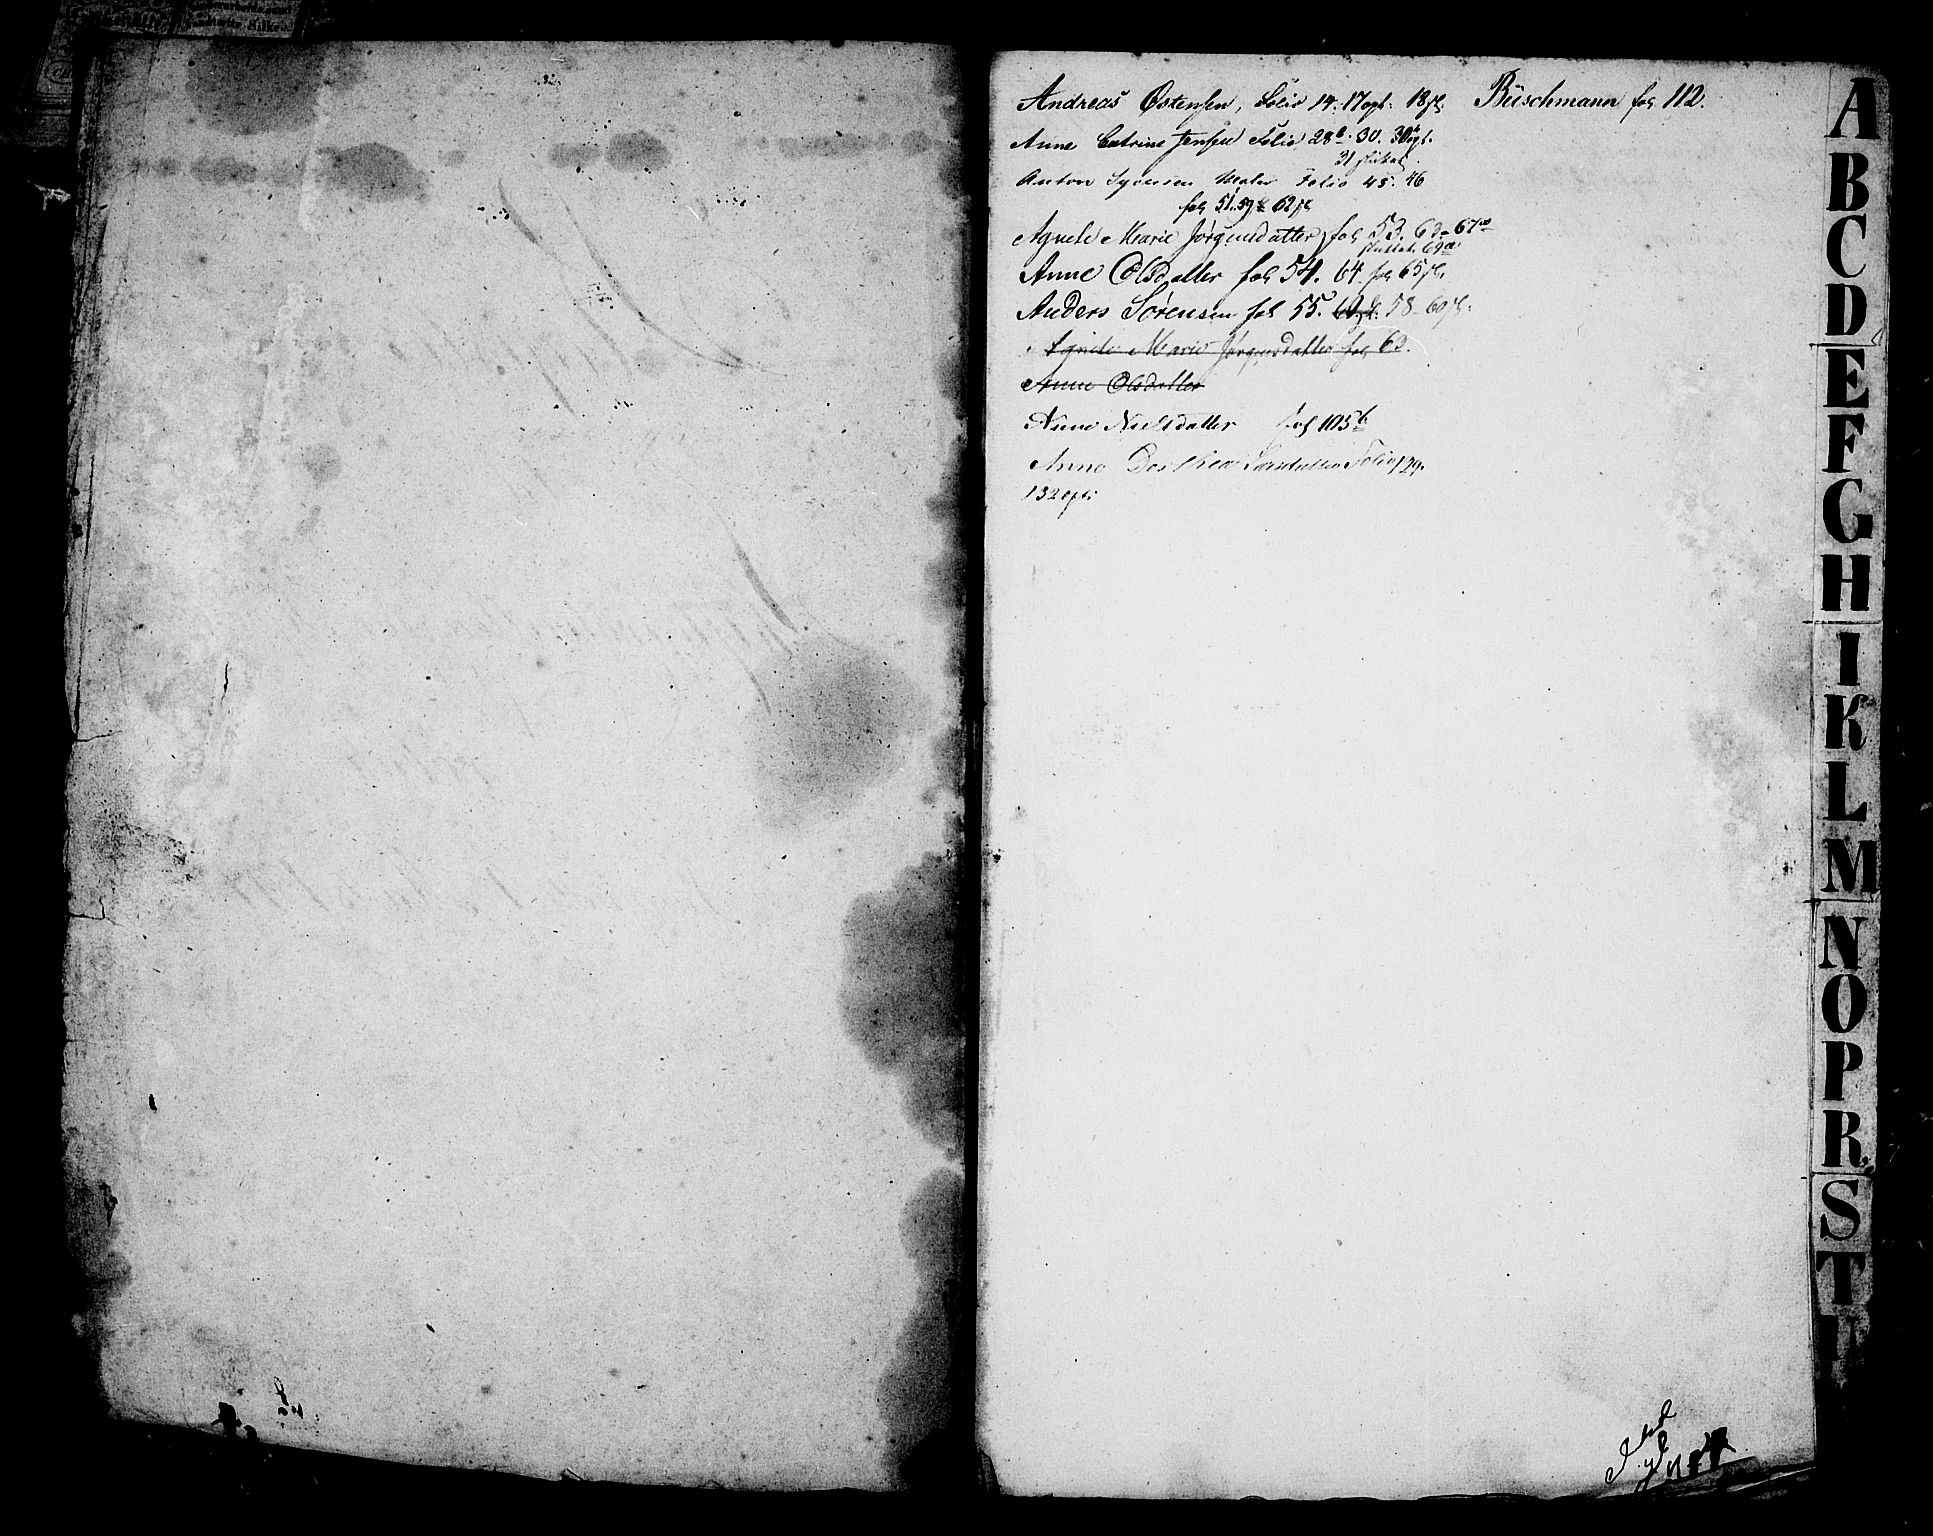 Andreas Østensen, Folio 14. 17 opl. 18 sl. Büschmann fol 112.
Anne Catrine Jensen Folio 28b. 30. 30b opl.
31 sluttet.
Anton Syversen Maler Folio 45. 46
fol 51. 59 & 62 sl
Agnete Marie Jørgensdatter fol 53. 63- 67
sluttet. 69a
Anne Olsdatter fol 54. 64 fol 65 sl.
Anders Sørensen fol 55. 58- 60 sl.
Agnete Marie Jørgensdatter fol 63.
Anne Olsdatter
Anne Nielsdatter fol 105b
Anne Dorthea Folio 129.
132 opl.
A
B
C
D
E
F
G
H
I
K
L
M
N
O
P
R
S
T